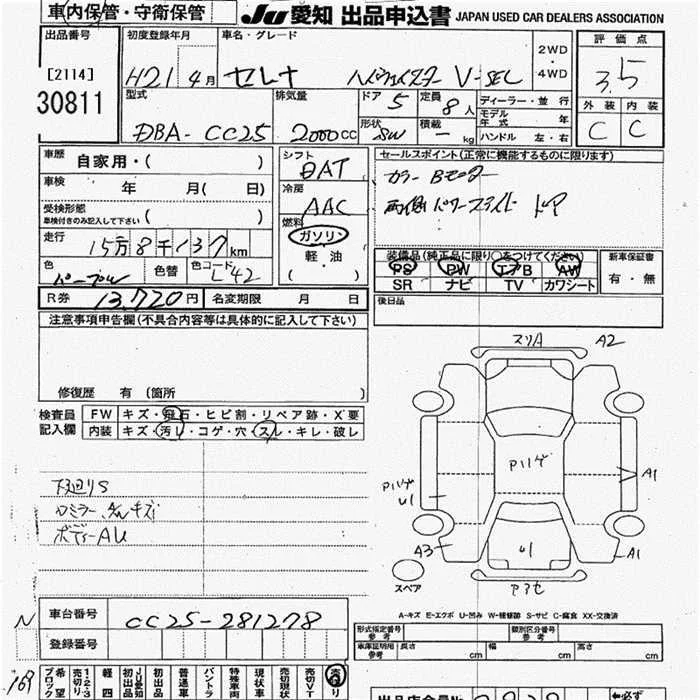 車内保管・守衛保管
JU愛知 出品申込書 JAPAN USED CAR DEALERS ASSOCIATION
出品番号
[2114]
30811
初度登録年月
H21 4月
車名・グレード
セレナ ハイウェイスター V-SEL
2WD
4WD
評価点
3.5
外装 内装
C C
型式
DBA-CC25
排気量
2000cc
ドア 5
定員 8人
形状 SW
積載 - kg
ディーラー・並行
モデル年式 年
ハンドル 左・右
車歴 自家用・( )
車検 年 月( 日)
受検形態
車検付きのみ記入して下さい ( )
走行
15万8千137km
色 パープル
色替
色コード L42
シフト
DAT
冷房
AAC
燃料
ガソリン
軽・油
( )
セールスポイント(正常に機能するものに限ります)
カラーBモニター
両側パワースライドドア
装備品(純正品に限り○をつけてください)
PS PW エアB AW
SR ナビ TV カワシート
新車保証書
有・無
後日品
R券 13,720円
名変期限 月 日
注意事項申告欄(不具合内容等は具体的に記入して下さい)
修復歴 有 (箇所 )
検査員
記入欄
FW キズ・飛石・ヒビ割・リペア跡・X要
内装 キズ・汚レ・コゲ・穴・スレ・キレ・破レ
下廻りS
ロミラー
キズ
ボディーAU
スリA
A2
Pハゲ
Pハゲ
U1
A1
A3
U1
A1
スペア
A-キズ E-エクボ U-凹み W-補修跡 S-サビ C-腐食 XX-交換済
N
車台番号
CC25-281278
登録番号
型式指定番号
参考
類別区分番号
参考
車庫証明用
参考
長さ cm
幅 cm
高さ cm
169
希望ブロック
1・2・3
売切り
軽四
JU愛知
初出品
初出品
普通車
バントラ
特殊車両
現状車
売切現状
売切VT
売切り
出品店会員No.